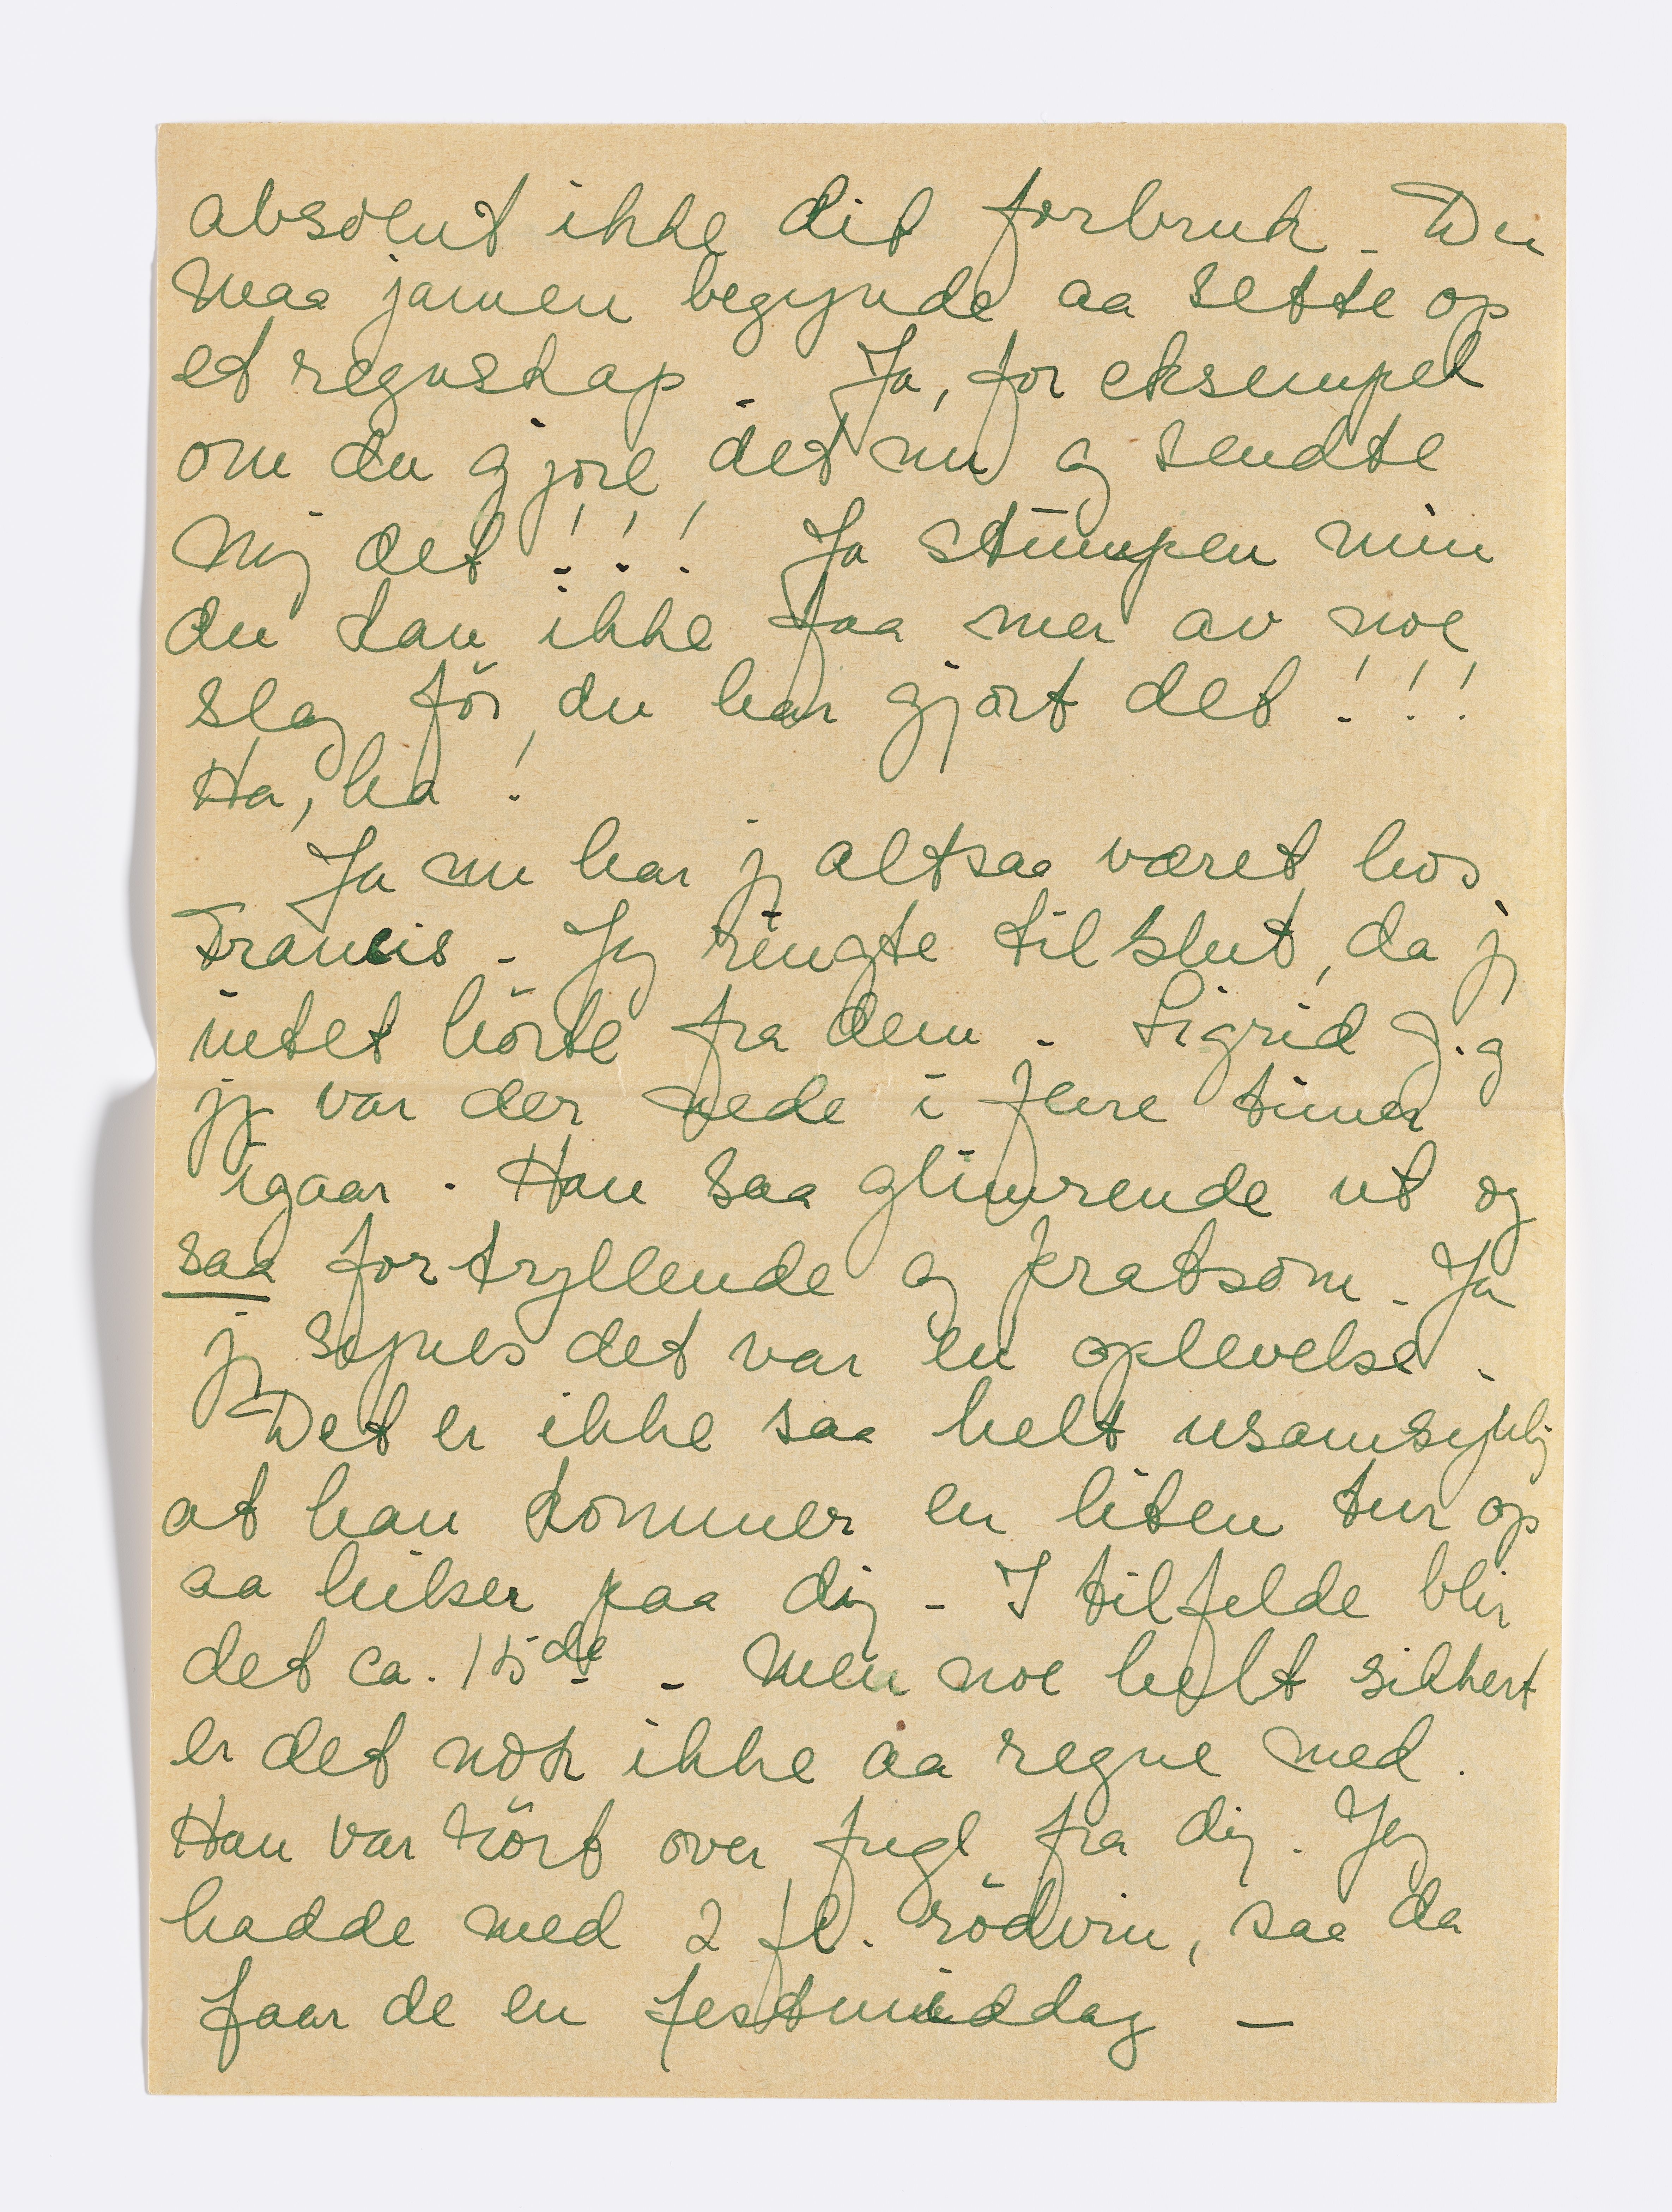 absolut ikke dit forbruk - Du
maa jamen begynde aa sette op
et regnskap - Ja, for eksempel
om du gjorl det nu og sendte
mig det !!! Ja stumpen min
du kan ikke faa mer av noe
slag för du har gjort det !!!
Ha, ha !
Ja nu har j altsaa været hos
Francis - Jeg ringte tilslut, da j
intet hörte fra dem - Sigrid J. og
jg var der nede i flere timer
igaar. Han saa glimrende ut og
saa fortryllende og pratsom - Ja
jg synes det var en oplevelse -
Det er ikke saa helt usansynlig
at han kommer en liten tur op
aa hilser paa dig - I tilfelde blir
det ca. 15de - Men noe helt sikkert
er det nok ikke aa regne med.
Han var rört over fugl fra dig. Jeg
hadde med 2 fl. rödvin, saa da
faar de en festmiddag -